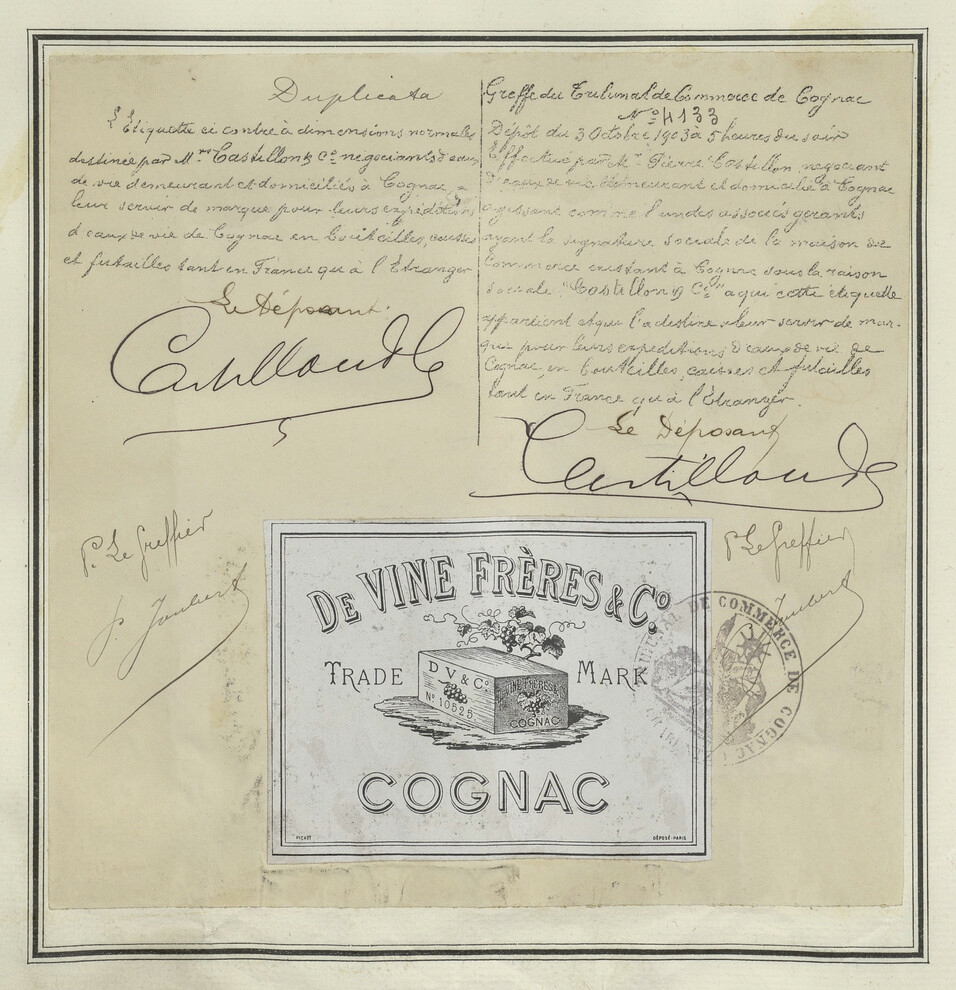 Duplicata
L'Etiquette ci contre à dimensions normales
destinée par Mrs Castillon & Co négociants d'eaux
de vie demeurant et domiciliés à Cognac, a
leur servir de marque pour leurs expéditions
d'eaux de vie de Cognac en bouteilles, caisses
et futailles tant en France qu'à l'Etranger
Le Déposant.
Castillon & Co
P. Le Greffier
J. Joubert
Greffe du Tribunal de Commerce de Cognac
No 4133
Dépôt du 3 Octobre 1903 à 5 heures du soir
Effectué par Mr Pierre Castillon négociant
d'eaux de vie demeurant et domicilié à Cognac
agissant comme l'un des associés gérants
ayant la signature sociale de la maison de
Commerce existant à Cognac sous la raison
sociale "Castillon & Cie" a qui cette étiquette
appartient et qui l'a destine a leur servir de mar-
que pour leurs expéditions d'eaux de vie de
Cognac, en bouteilles, caisses et futailles
tant en France qu'à l'Etranger.
Le Déposant
Castillon & Co
P. Le Greffier
Joubert
DE VINE FRÈRES & Co
TRADE MARK
D V & Co
No 10525
DE VINE FRÈRES & Co
COGNAC
COGNAC
PICHOT
DÉPOSÉ-PARIS
TRIBUNAL DE COMMERCE DE COGNAC